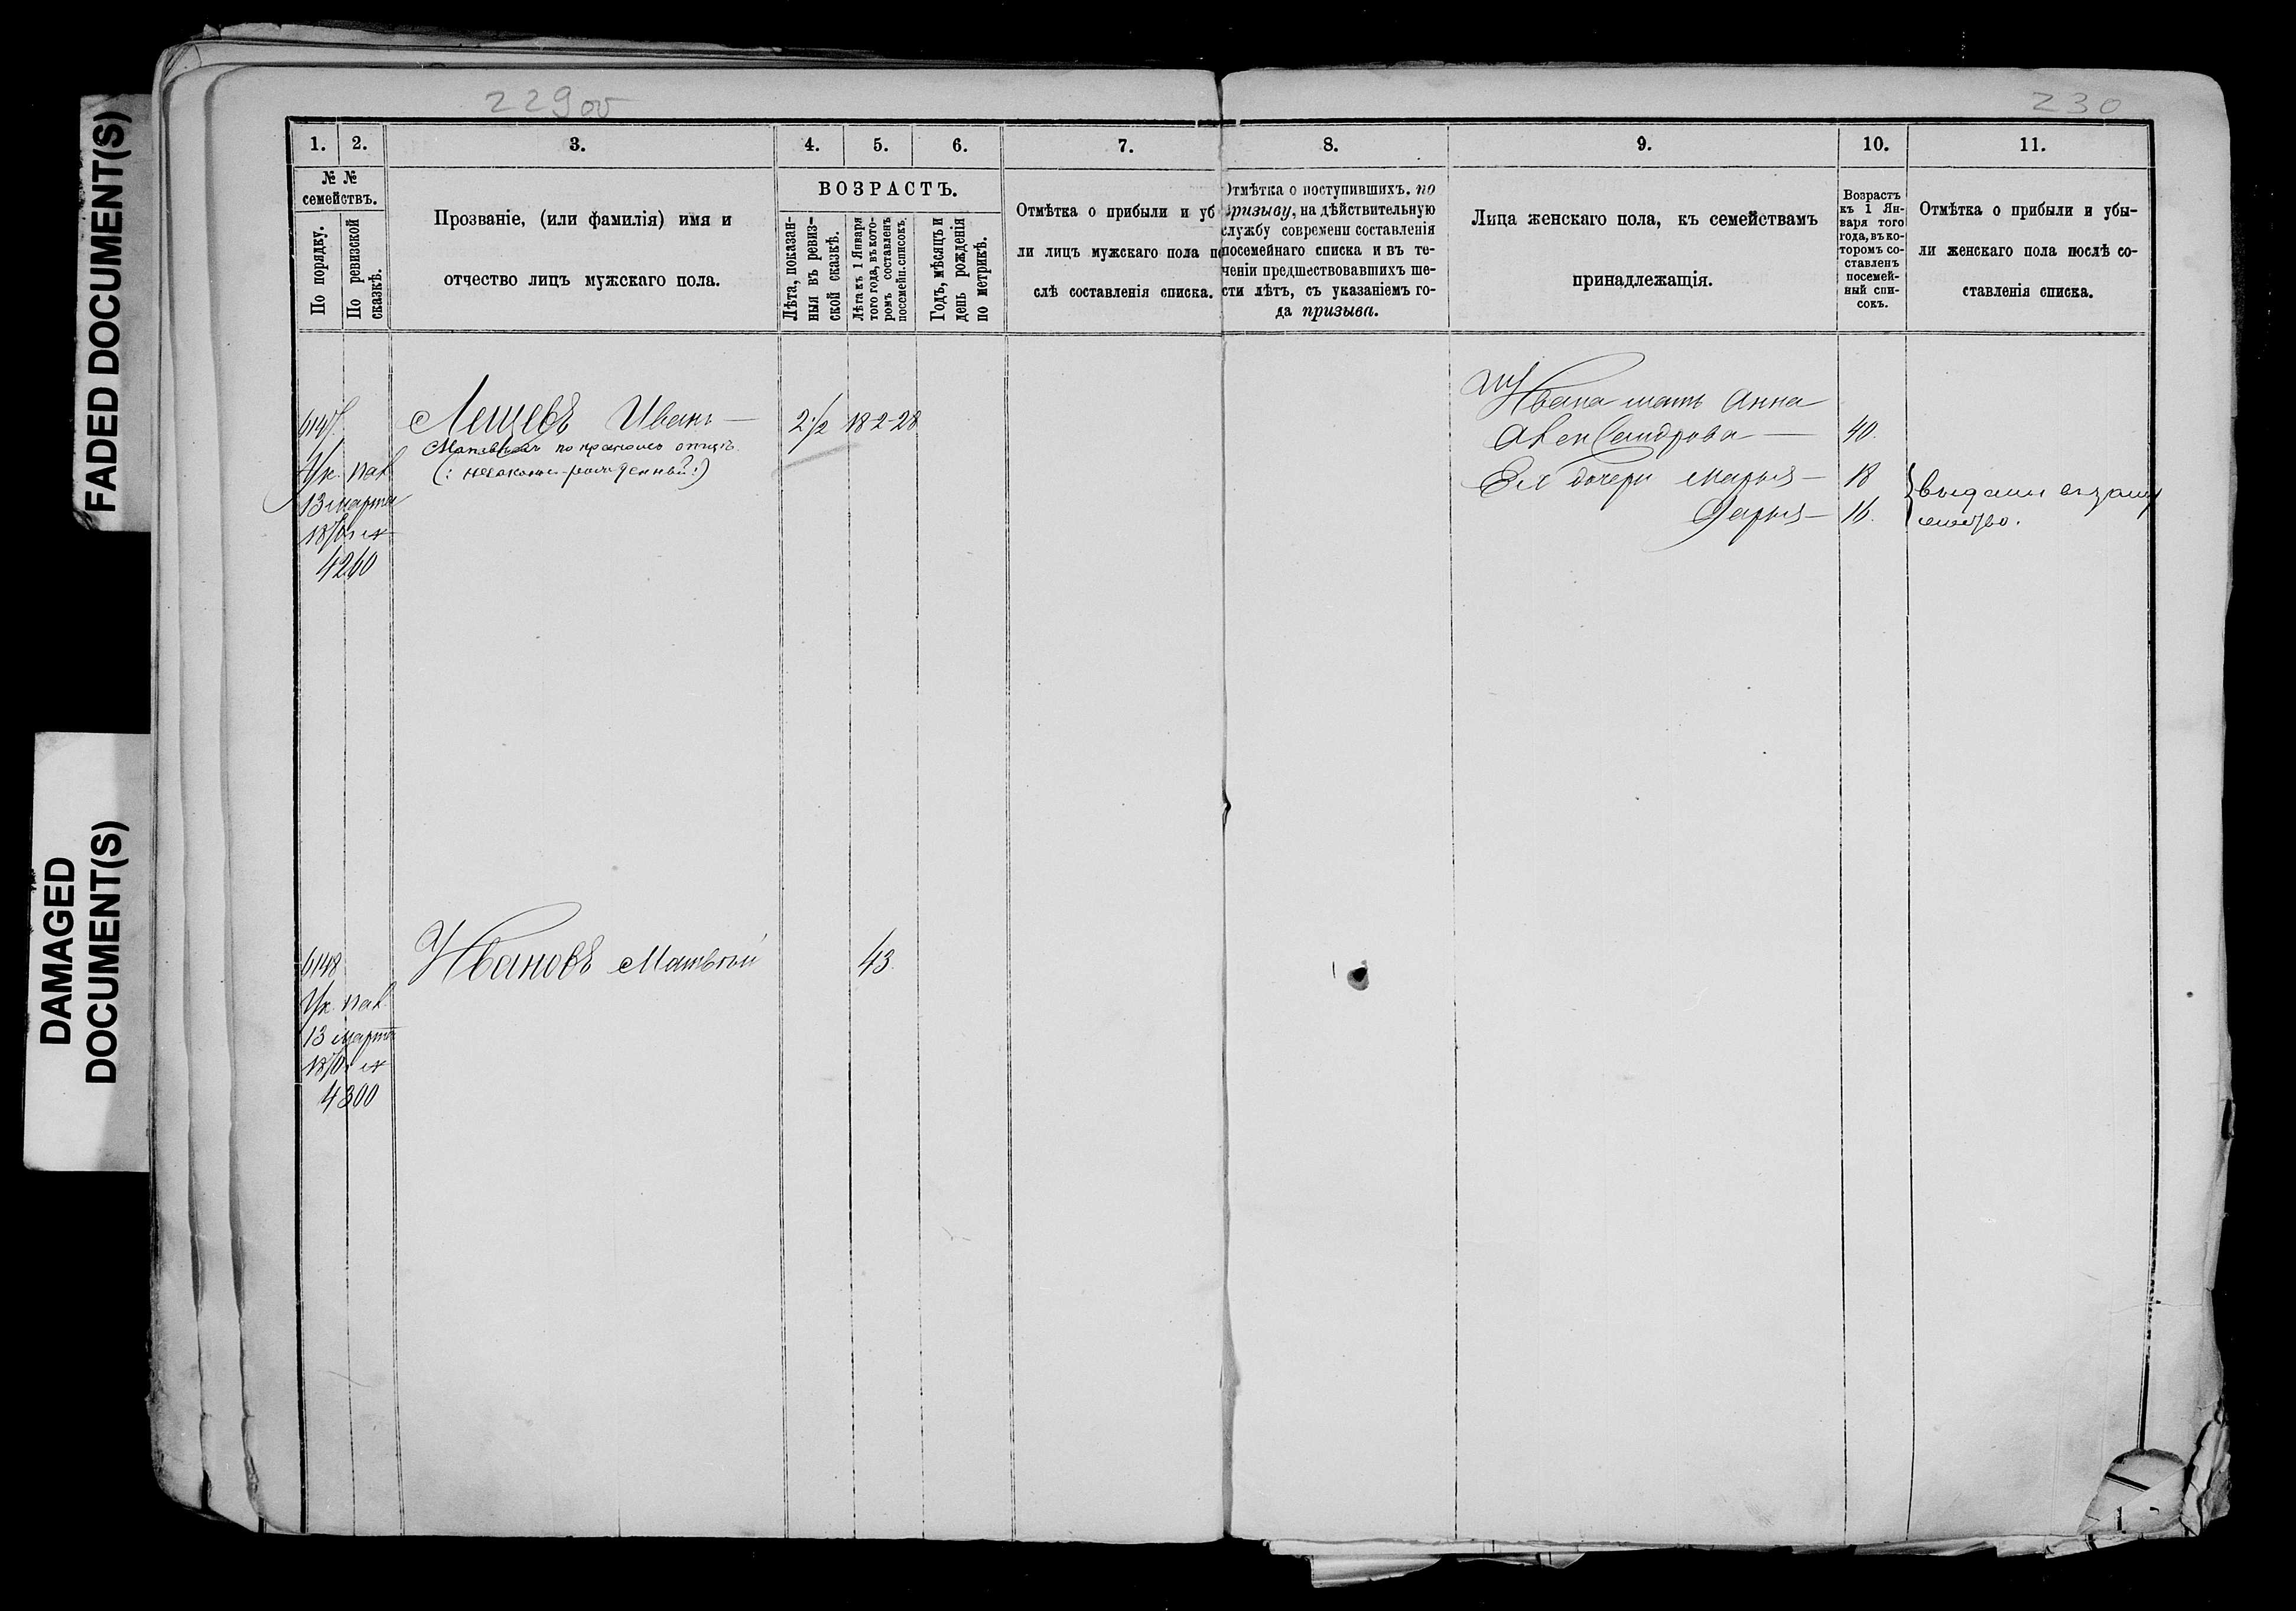 FADED DOCUMENT(S)
DAMAGED
DOCUMENT(S)
229об
230
1.
2.
3.
4.
5.
6.
7.
8.
9.
10.
11.
№ №
семействъ.
По порядку.
По ревизской
сказкѣ.
Прозваніе, (или фамилія) имя и
отчество лицъ мужскаго пола.
ВОЗРАСТЪ.
Лѣта, показан-
ныя въ ревиз-
ской сказкѣ.
Лѣта къ 1 Января
того года, въ кото-
ромъ составленъ
посемейн. списокъ.
Годъ, мѣсяцъ и
день рожденія
по метрикѣ.
Отмѣтка о прибыли и уб
ли лицъ мужскаго пола по
слѣ составленія списка.
Отмѣтка о поступившихъ. по
призыву, на дѣйствительную
службу современи составленія
посемейнаго списка и въ те-
ченіи предшествовавшихъ ше-
сти лѣтъ, съ указаніемъ го-
да призыва.
Лица женскаго пола, къ семействамъ
принадлежащія.
Возрастъ
къ 1 Ян-
варя того
года, въ ко-
торомъ со-
ставленъ
посемей-
ный спи-
сокъ.
Отмѣтка о прибыли и убы-
ли женскаго пола послѣ со-
ставленія списка.
6147. Лещевъ Иванъ — 2 1/2 18-2-28
отцу
(: незаконно-рожденный :)
Ук. пал.
13 марта
4260
Ивана мать Анна
Александрова — 40.
Ея дочери Марья — 18
Дарья — 16.
выданы въ заму
жество.
6148 Ивановъ Матвѣй 43.
Ук. пал.
13 марта
4300
1